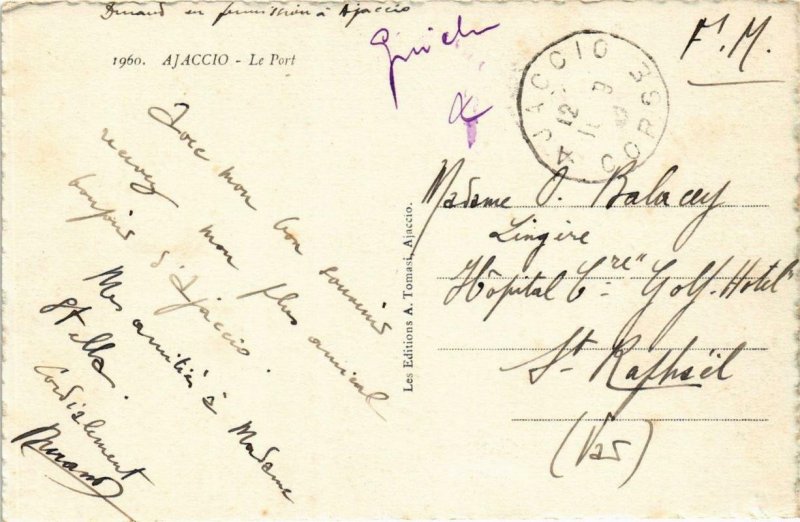 Durand en permission à Ajaccio
1960. AJACCIO - Le Port
F. M.
AJACCIO CORSE
12
Avec mon bon souvenir
recevez mon plus amical
bonjour d'Ajaccio.
Mes amitiés à Madame
Stella.
Cordialement
Durand
Les Editions A. Tomasi, Ajaccio.
Madame J. Balacey
Lingère
Hôpital C^re "Golf-Hotel"
St. Raphaël
(Var)